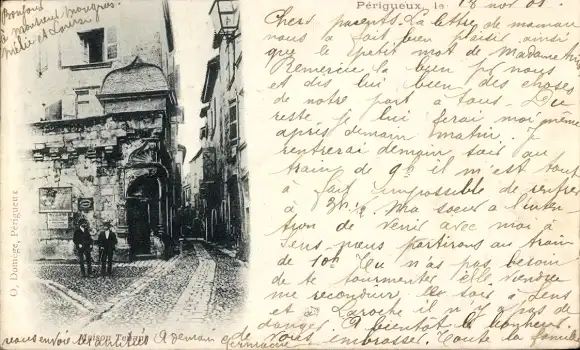 Bonjour
à monsieur
Mélie et Louise
Périgueux, le 18 nov 01.
Chers parents. La lettre de maman
nous a fait bien plaisir ainsi
que le petit mot de Madame
Remercie la bien pr nous
et dis lui bien des choses
de notre part à tous. Du
reste je lui ferai moi-même
après demain matin. Je
rentrerai demain soir au
train de 9h il m'est tout
à fait impossible de rentrer
à 3h½. Ma soeur a l'inten
tion de venir avec moi à
Sens nous partirons au train
de 10h Tu n'as pas besoin
de te tourmenter elle viendra
me reconduire le soir à Sens
et à Laroche il n'y a pas de
danger. A bientôt le bonheur
de vous embrasser. Toute la famille
vous envoie A demain
Germaine
Maison Tenant
O. Domège, Périgueux